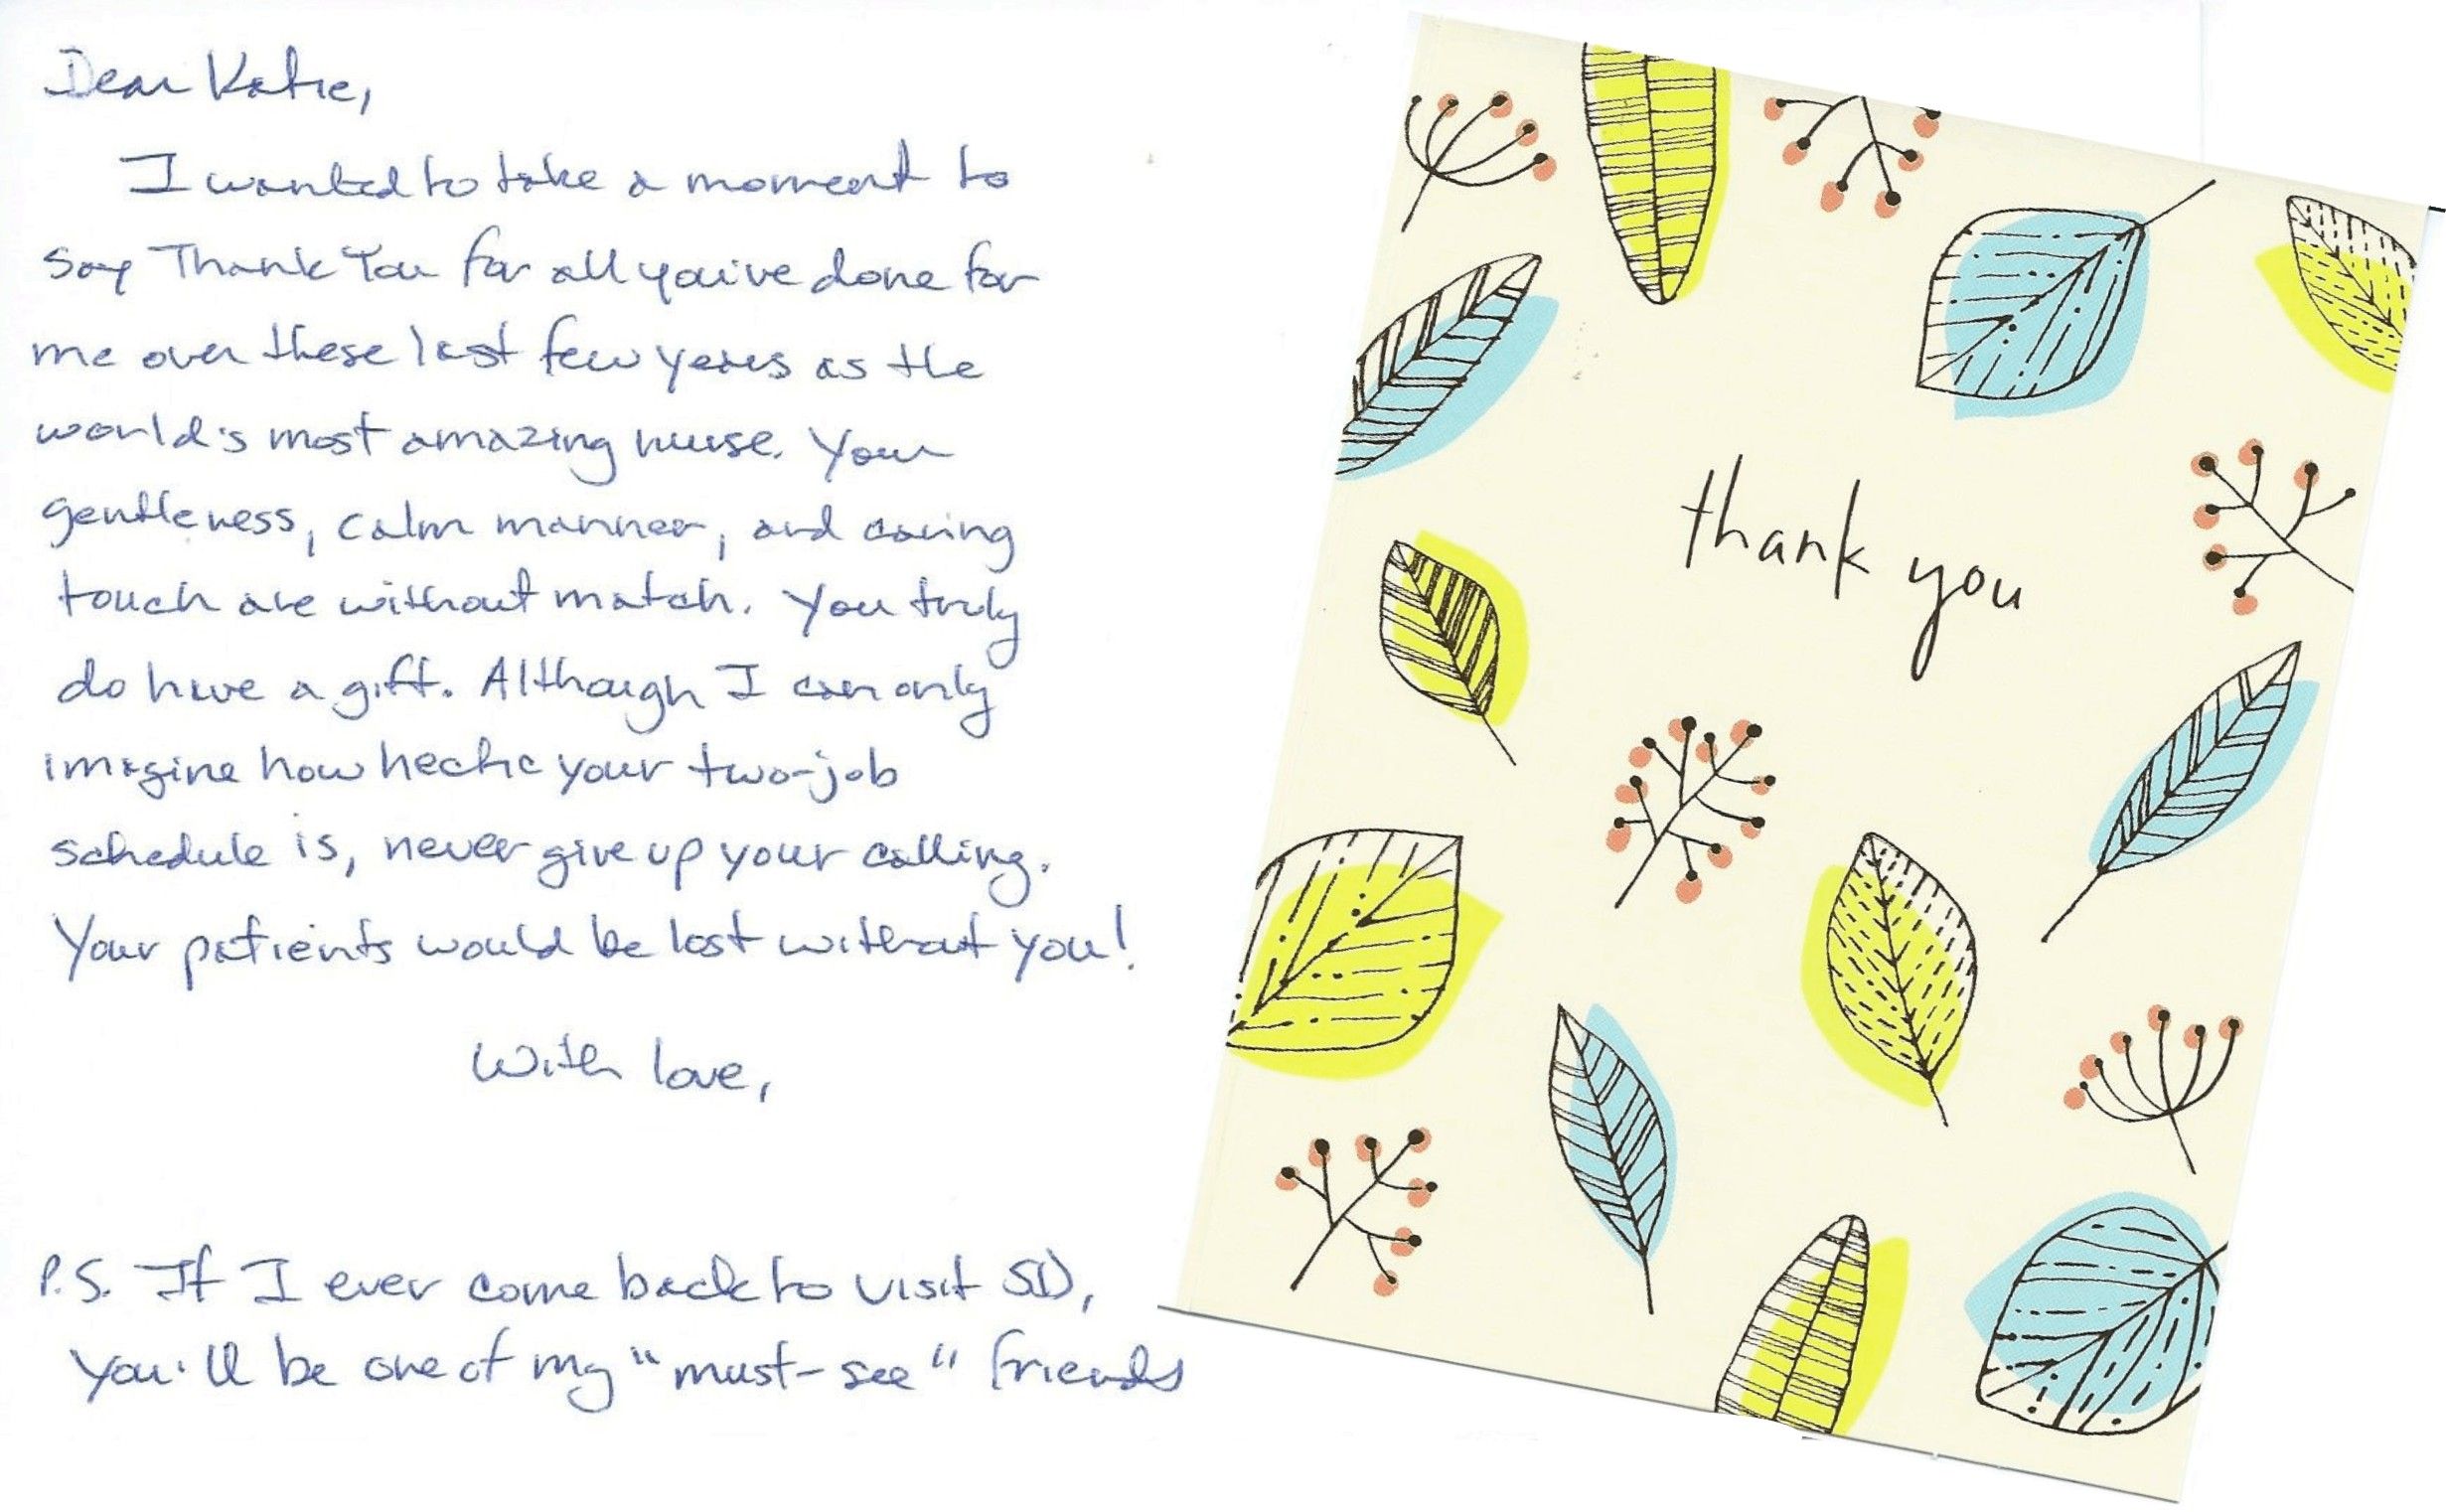 Dear Katie,
I wanted to take a moment to
say Thank You for all you've done for
me over these last few years as the
world's most amazing nurse. Your
gentleness, calm manner, and caring
touch are without match. You truly
do have a gift. Although I can only
imagine how hectic your two-job
schedule is, never give up your calling.
Your patients would be lost without you!
With love,
P.S. If I ever come back to visit SD,
You'll be one of my "must-see" friends
thank you